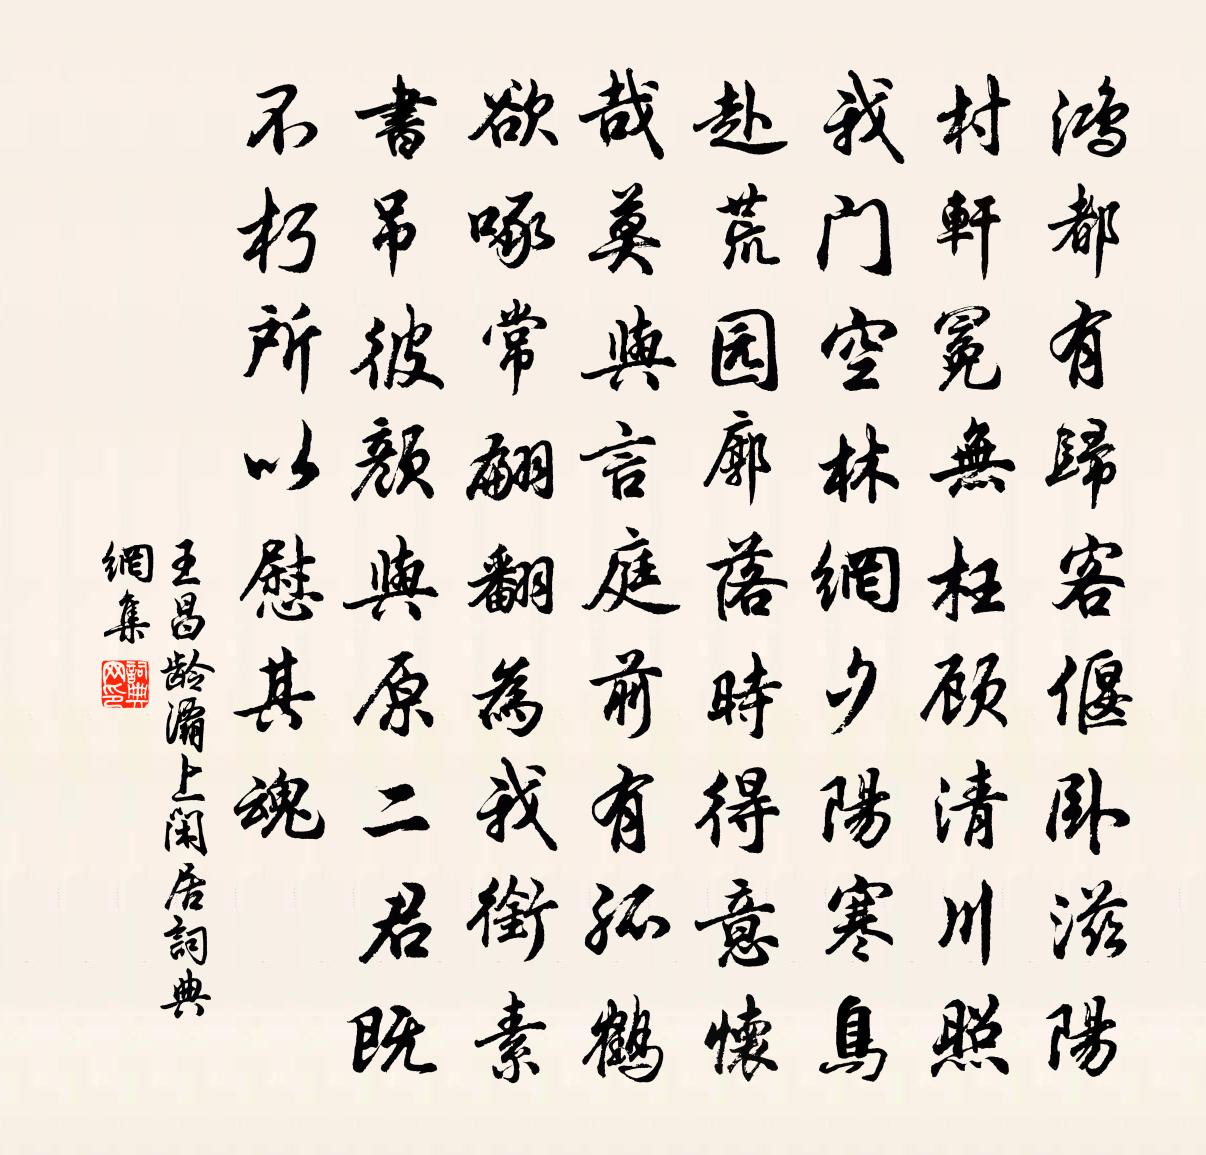 鴻都有歸客偃卧滋陽
村軒冕無枉顾清川照
我门空林網夕陽寒鳥
赴荒园廓落時得意懷
哉莫與言庭前有孤鶴
欲啄常翩翻為我銜素
書吊彼顔與原二君既
不朽所以慰其魂
王昌龄灞上闲居詞典
網集
詞典
网印